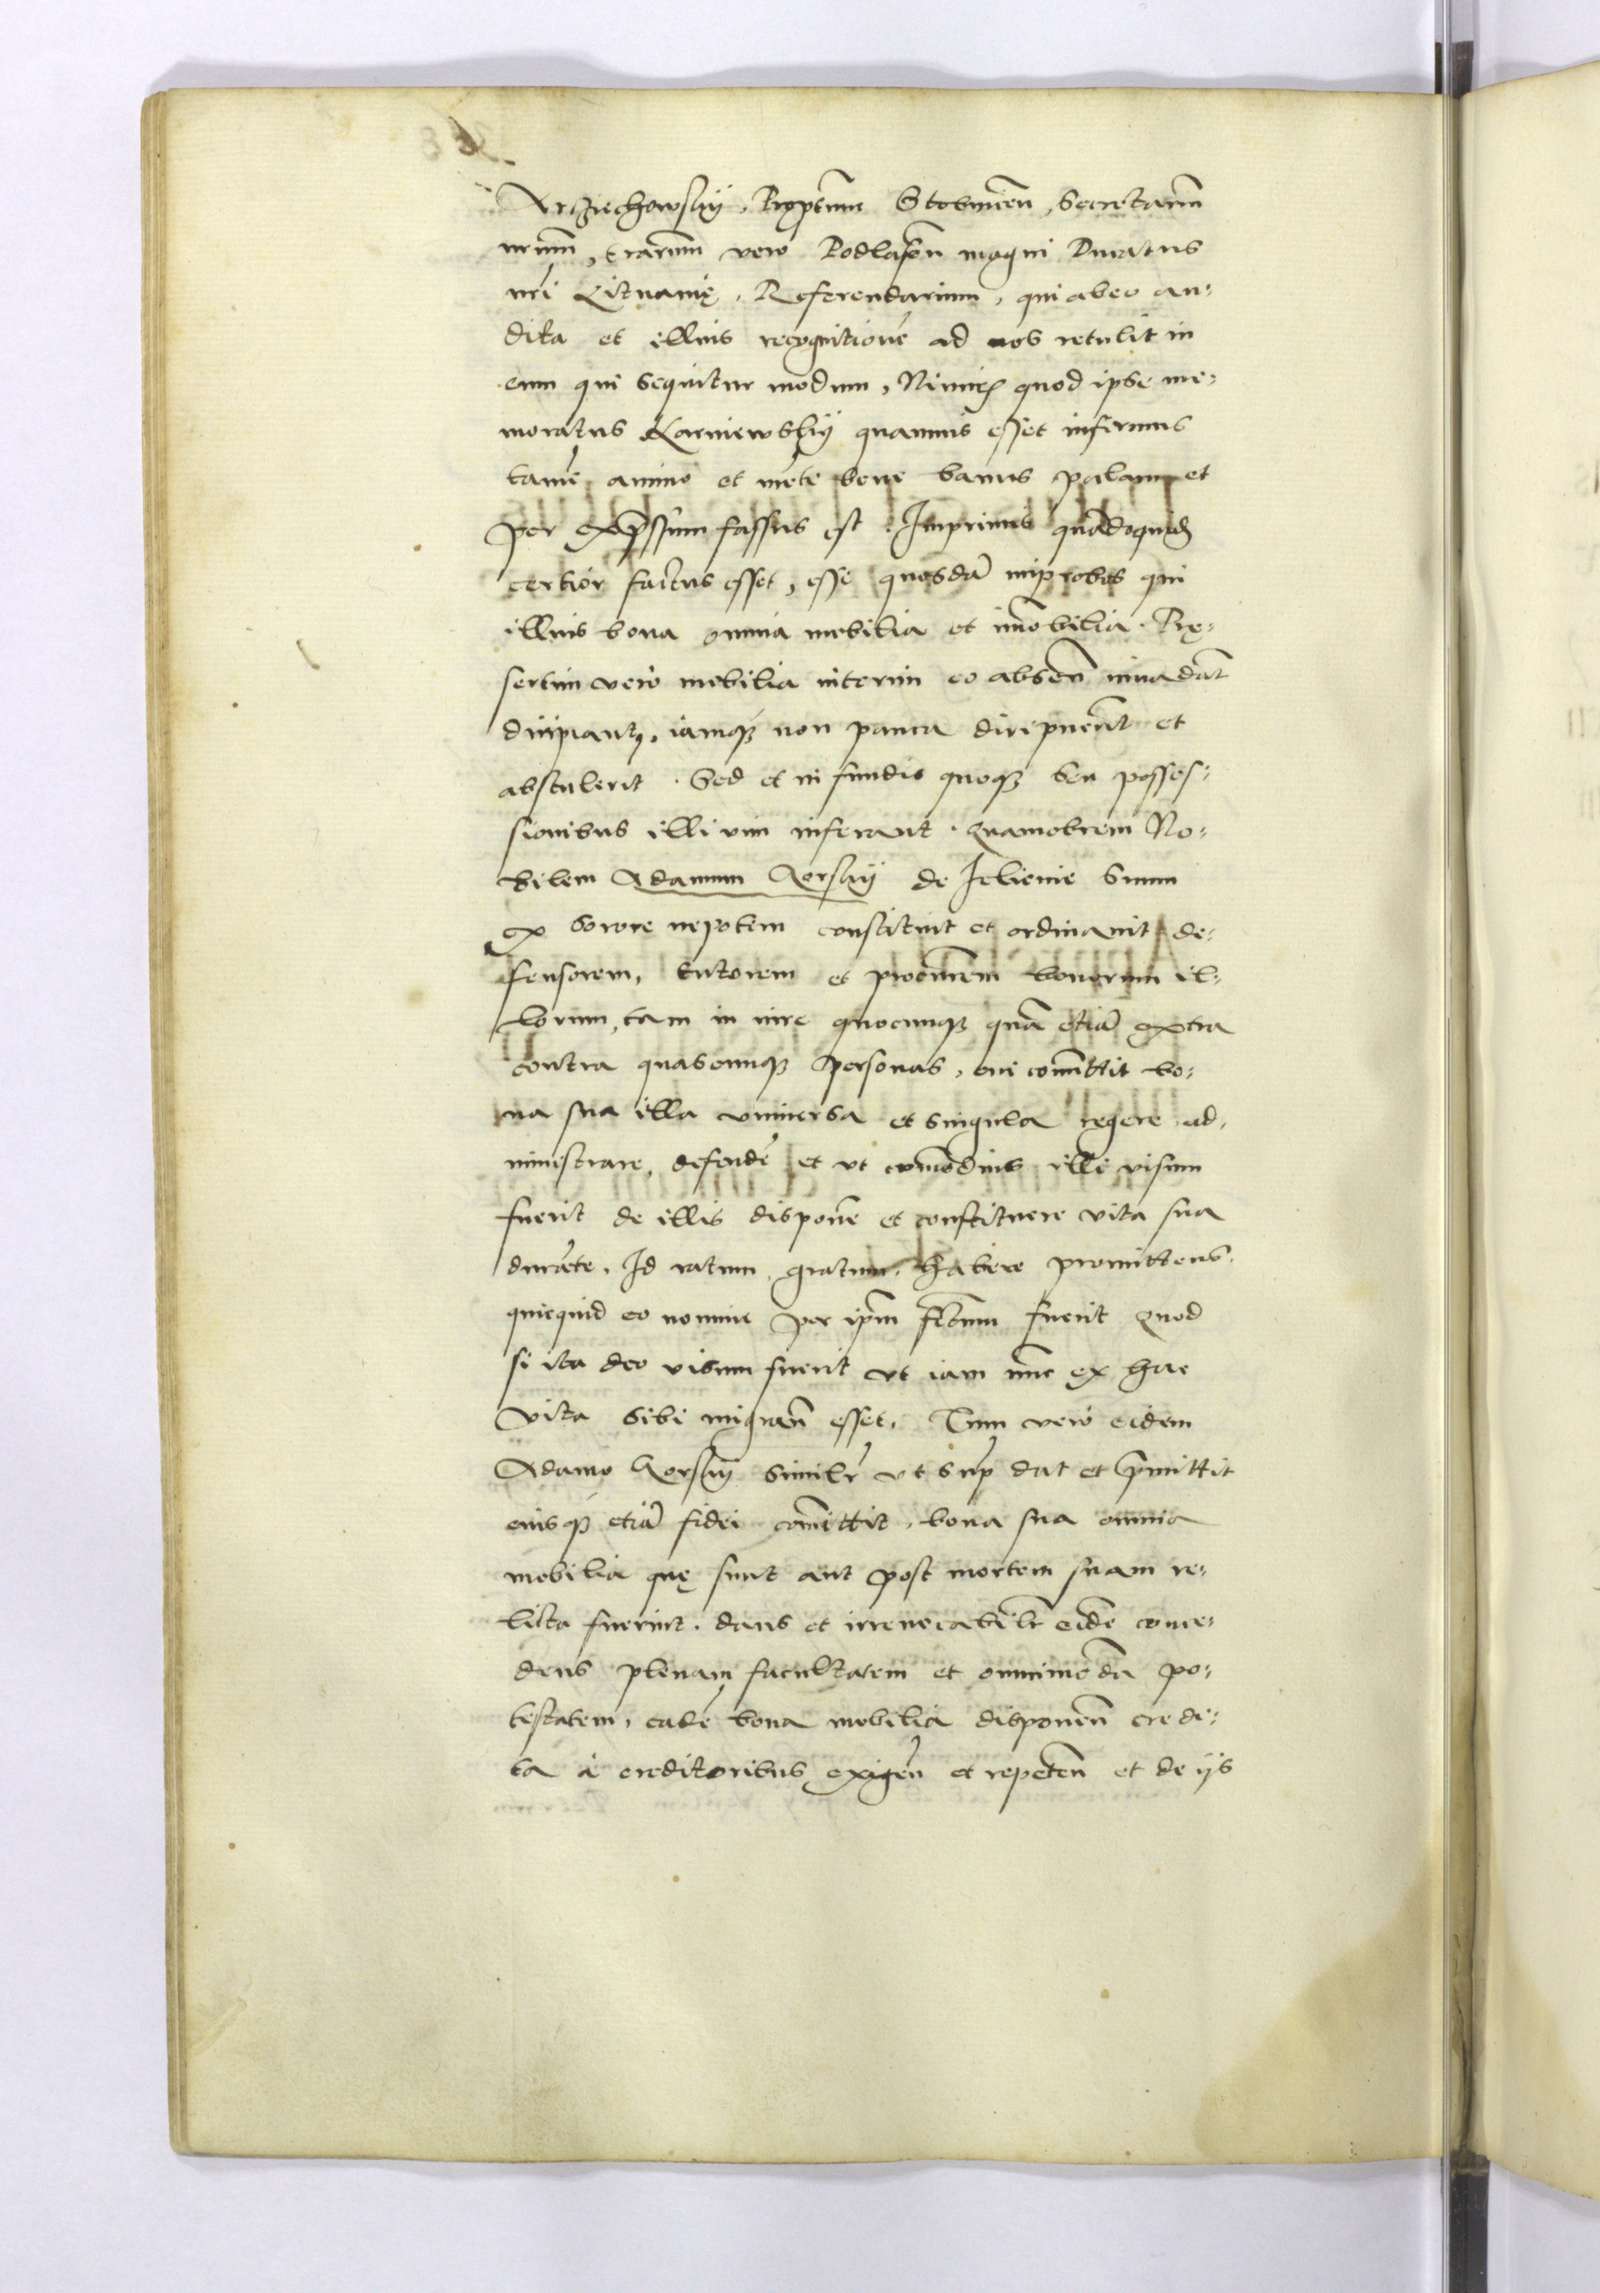 Orzechowskij, Prępositum Stobnicen, Secretarium
nrum, Terrarum vero Podlasien magni Ducatus
nri Lituanię, Referendarium, qui ab eo au-
dita et illius recognitione ad nos retulit in
eum qui sequitur modum, Nimirum quod ipse me-
moratus Karniewskij quamvis esset infirmus
tamē animo et mēte bene sanus palam et
per expressum fassus est. Imprimis quādoquidē
certior factus esset, esse quosdā improbos qui
illius bona omnia mobilia et imobilia. Pre-
sertim vero mobilia interim eo absen invadāt
diripiantque, iamque non pauca diripuerīt et
abstulerīt. Sed et in fundis quoque seu posses-
sionibus illi vim inferant. Quamobrem No-
bilem Adamum Korskij de Jelienie suum
ex sorore nepotem constituit et ordinavit de-
fensorem, tutorem et procurem bonorum il-
lorum, tam in iure quocunque quā etiā extra
contra quascunque personas, cui comittit bo-
na sua illa universa et singula regere ad-
ministrare, defendē et ut comodius illi visum
fuerit de illis disponē et constituere vita sua
durāte. Id ratum, gratum, habere promittens.
quicquid eo nomine per ipm fctum fuerit Quod
si ita deo visum fuerit ut iam nūc ex hac
vita sibi migran esset. Tum vero eidem
Adamo Korskij similr ut supr dat et permittit
eiusque etiā fidei comittit, bona sua omnia
mobilia quę sunt aut post mortem suam re-
licta fuerint. dans et irrevocabilr eidē conce-
dens plenam facultatem et omnimodā po-
testatem, eadē bona mobilia disponen cre di-
ta à creditoribus exigen et repeten et de ijs